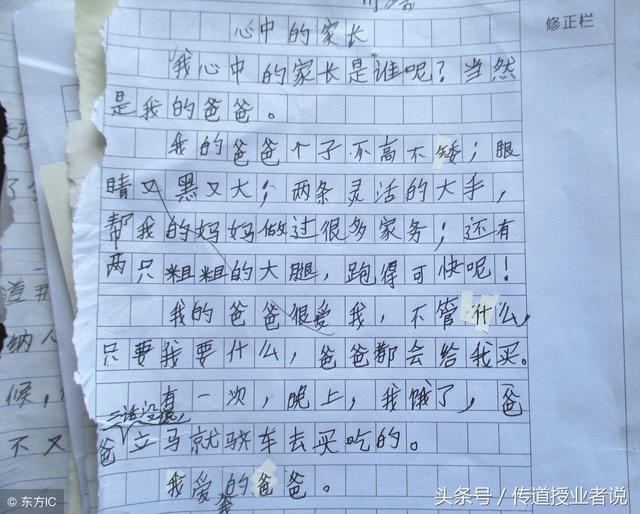 修正栏
心中的家长
我心中的家长是谁呢？当然
是我的爸爸。
我的爸爸个子不高不矮；眼
睛又黑又大；两条灵活的大手，
帮我的妈妈做过很多家务；还有
两只粗粗的大腿，跑得可快呢！
我的爸爸很爱我，不管什么，
只要我要什么，爸爸都会给我买。
有一次，晚上，我饿了，爸
二话没说，
爸立马就骄车去买吃的。
我爱的爸爸。
我
纳人
候，
不又
© 东方IC
头条号 / 传道授业者说